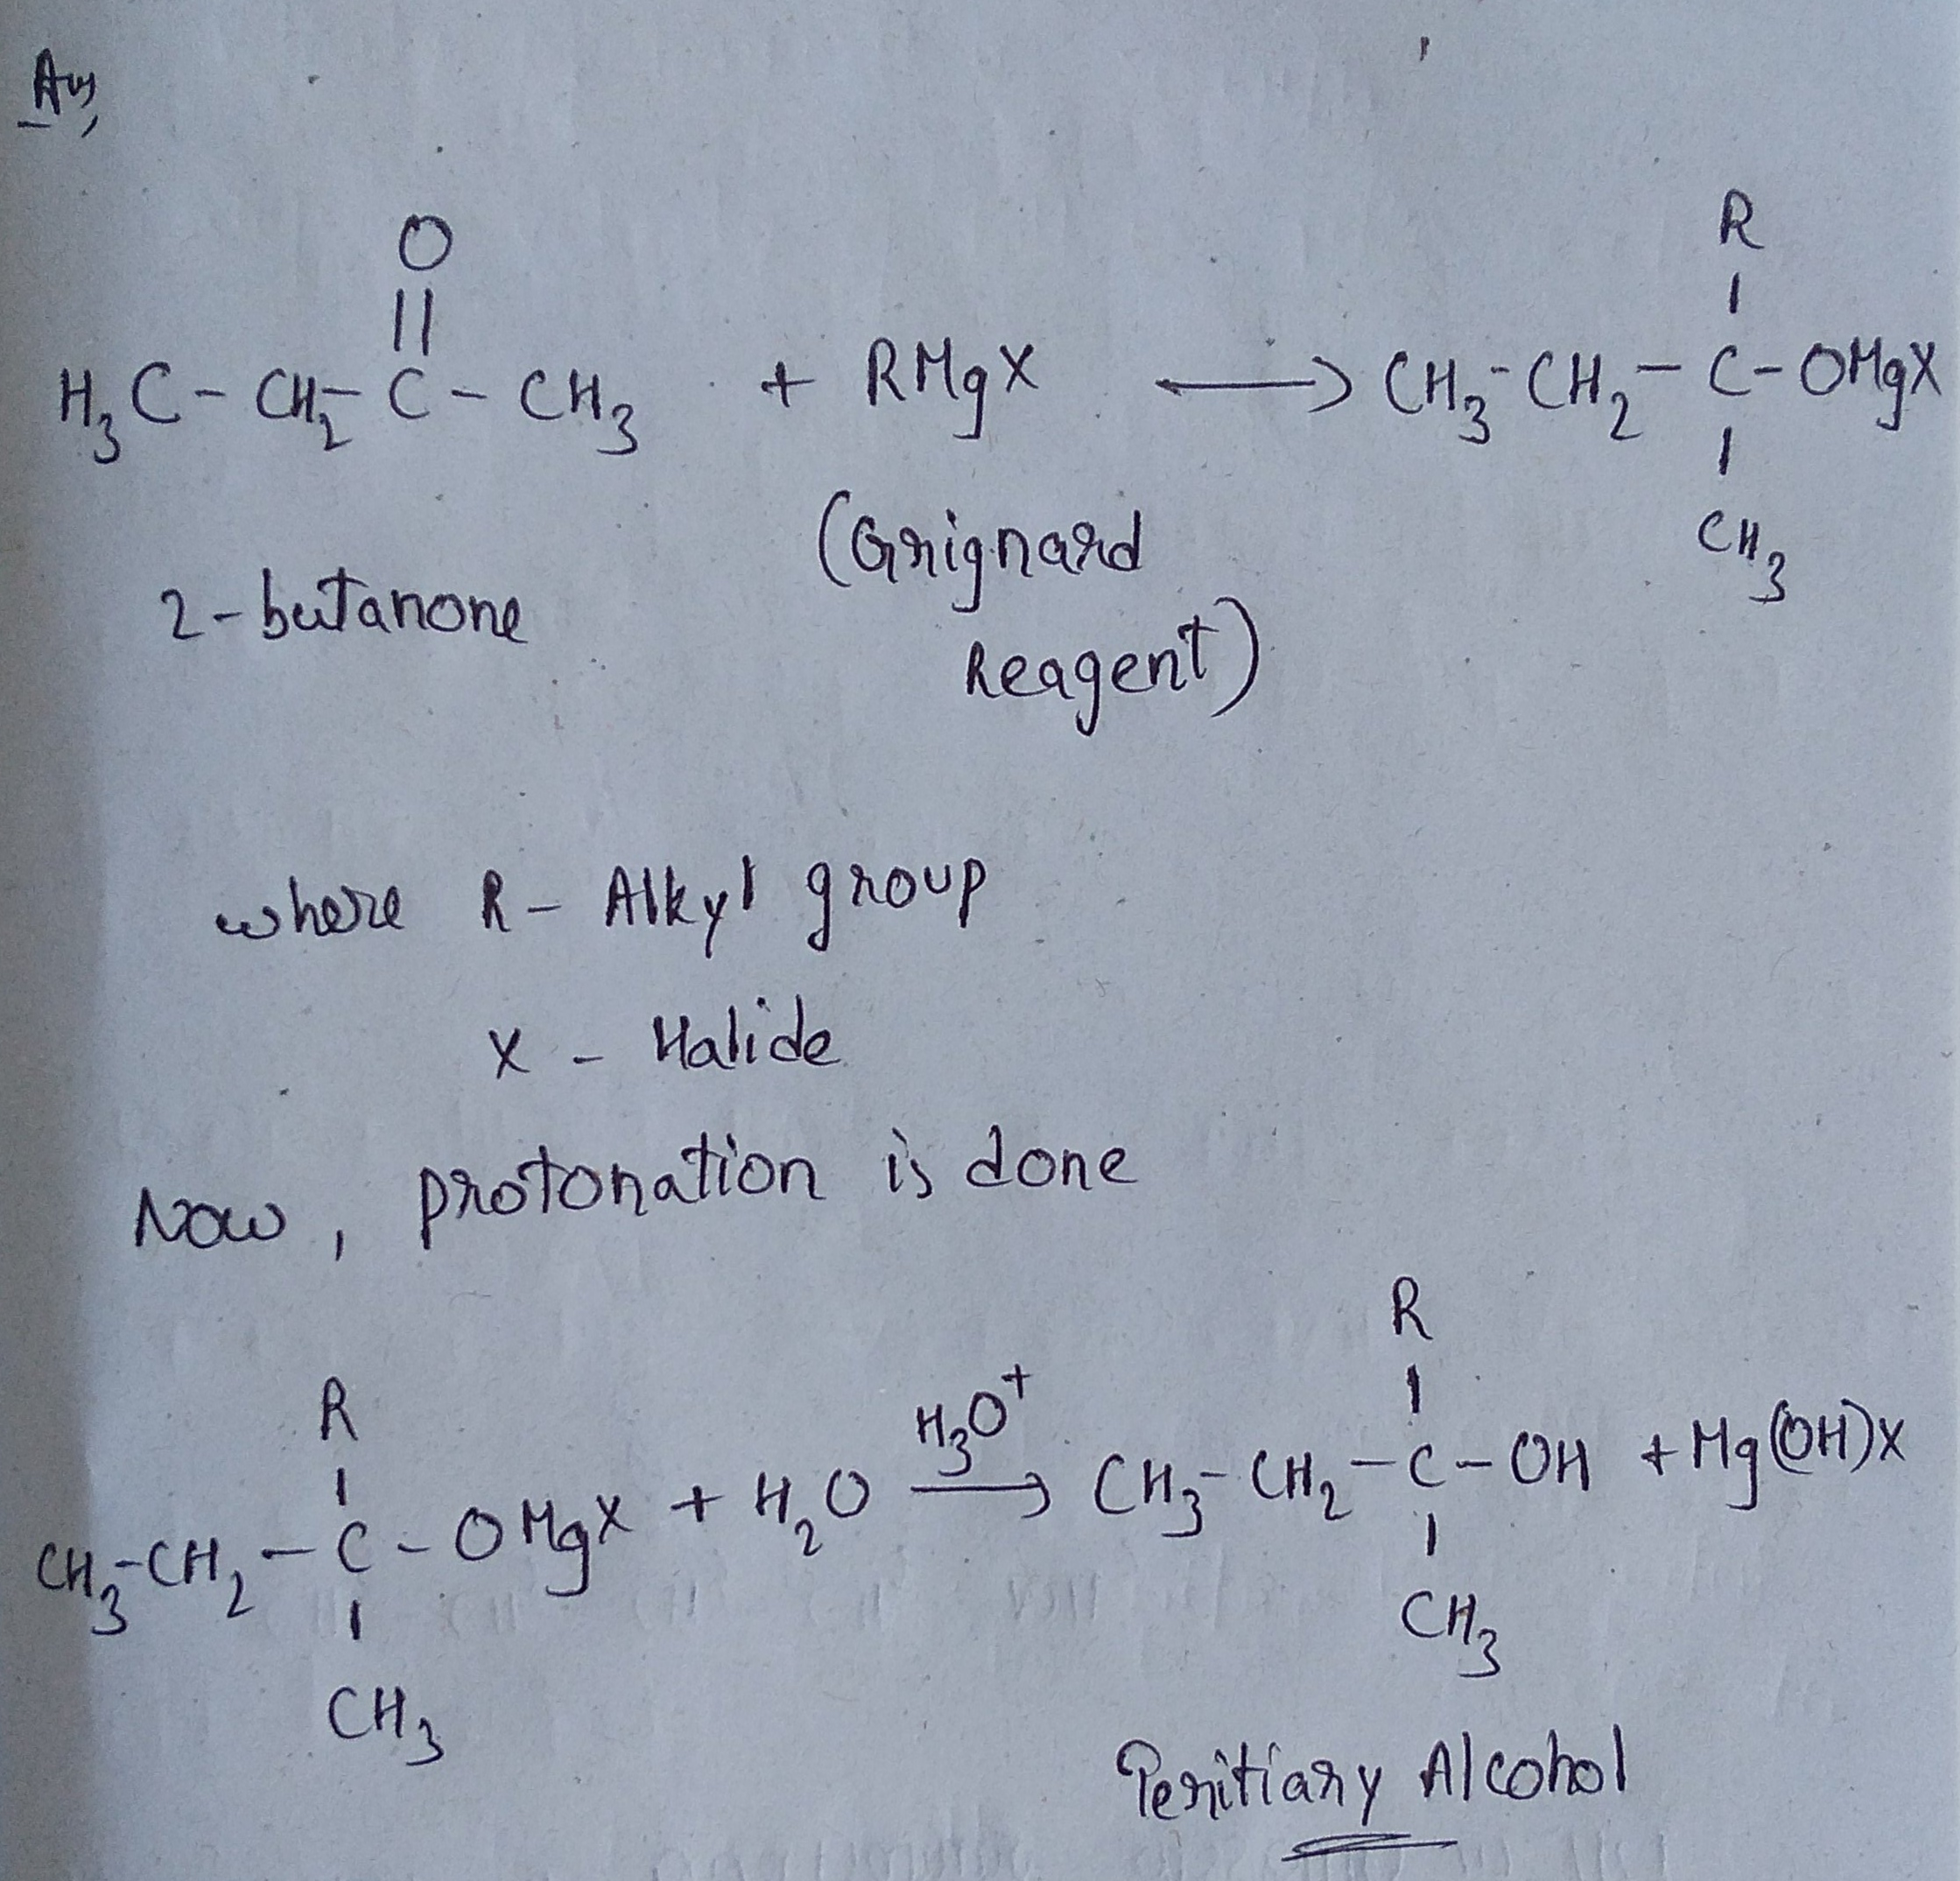 Ans,
O
||
H₃C - CH₂ - C - CH₃ + RMgX ⟶ CH₃ - CH₂ - C - OMgX
R
|
|
CH₃
2-butanone
(Grignard
Reagent)
where R - Alkyl group
X - Halide
Now, protonation is done
R
|
CH₃-CH₂ - C - OMgX + H₂O ⟶ CH₃ - CH₂ - C - OH + Mg(OH)X
|
CH₃
H₃O⁺
R
|
|
CH₃
Teritiary Alcohol